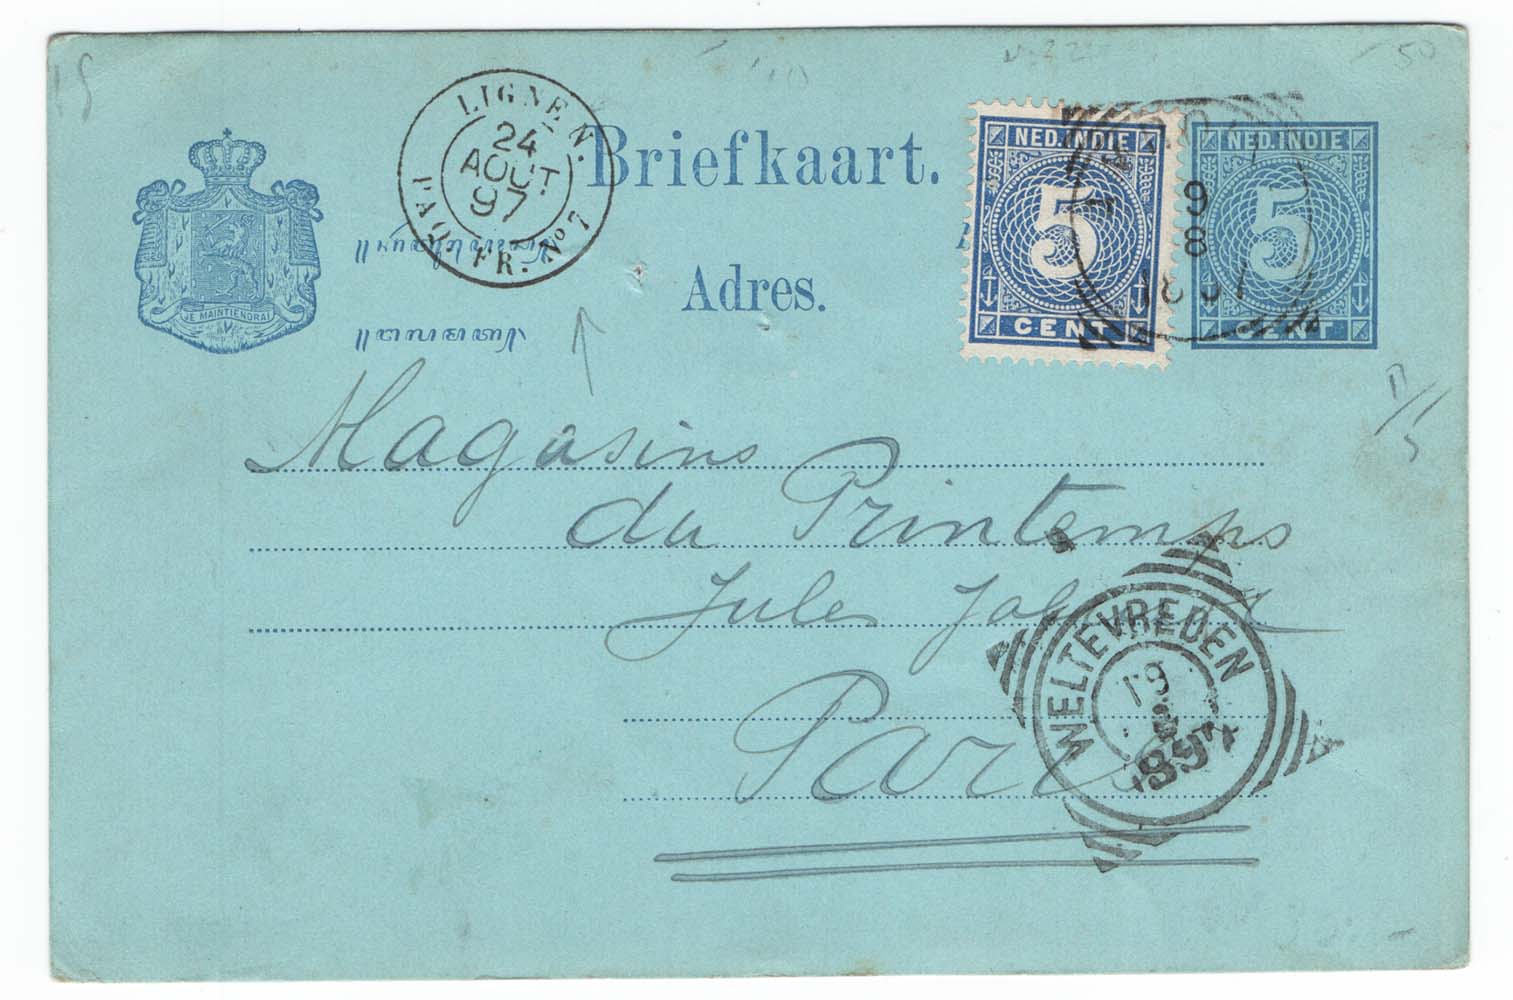 LIGNE N.
24
AOUT
97
PAQ. FR. No 7
Briefkaart.
Adres.
JE MAINTIENDRAI
NED. INDIE
5
CENT
NED. INDIE
5
CENT
9
8
1897
Magasins
du Printemps
Jules
Paris
WELTEVREDEN
1897